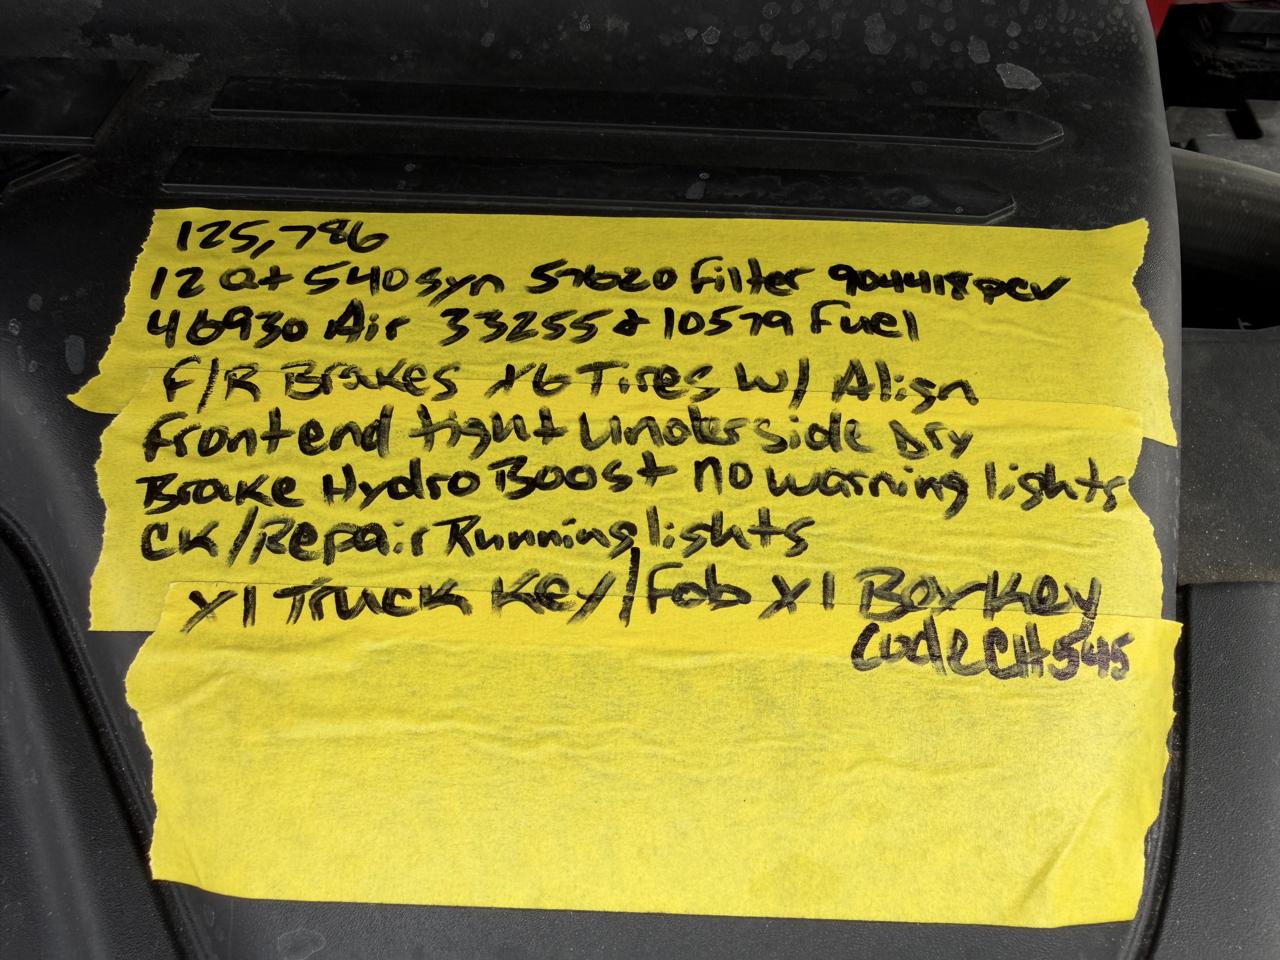 125,786
12 Qt 540 syn 57620 filter 904418 pcv
46930 Air 33255 & 10579 Fuel
F/R Brakes x6 Tires w/ Align
Frontend tight Underside Dry
Brake HydroBoost no warning lights
CK/Repair Running lights
x1 Truck Key/Fob x1 Box Key
Code CH545